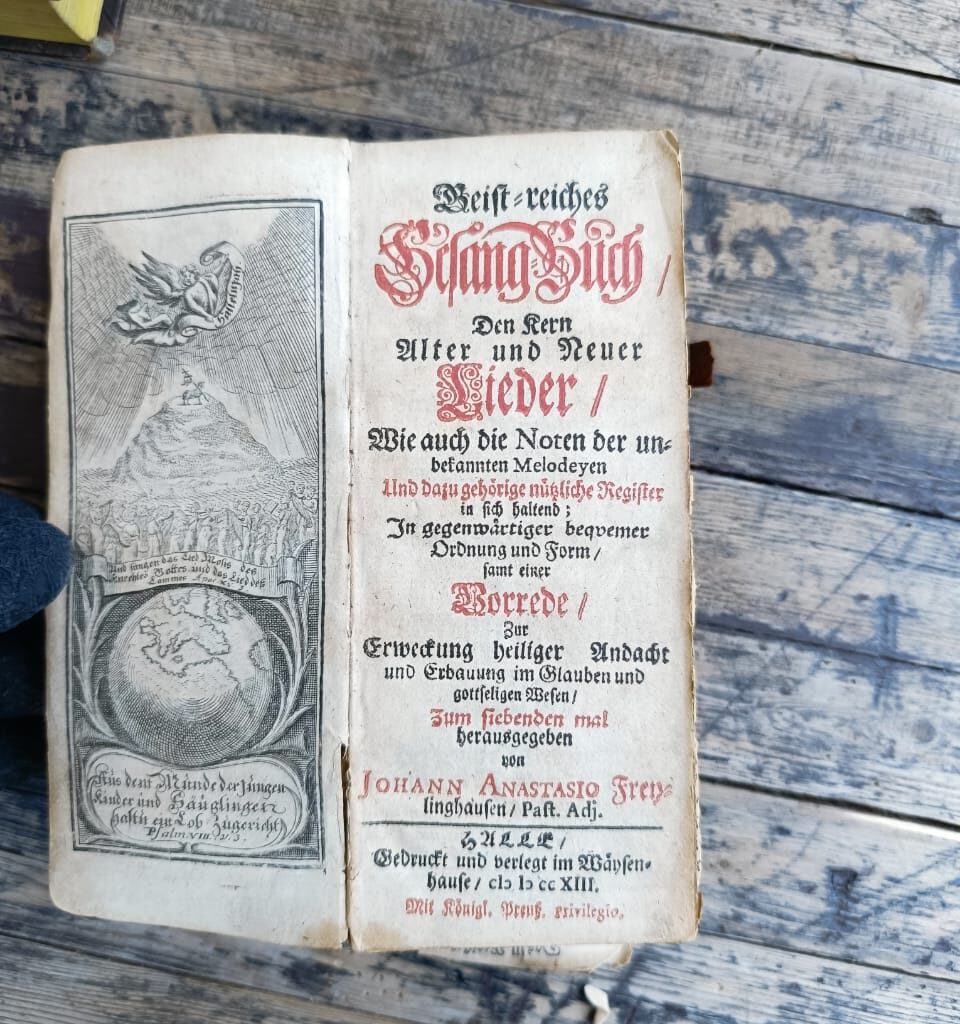 Hallelujah
Und sungen das Lied Mosis des
Knechtes Gottes und das Lied des
Lammes Apoc.
Aus dem Munde der Jungen
Kinder und Säuglingen
hastu ein Lob Zugericht
Psalm VIII. v. 3.
Geist-reiches
Gesang-Buch /
Den Kern
Alter und Neuer
Lieder /
Wie auch die Noten der un-
bekannten Melodeyen
Und dazu gehörige nützliche Register
in sich haltend;
In gegenwärtiger beqvemer
Ordnung und Form /
samt einer
Vorrede /
Zur
Erweckung heiliger Andacht
und Erbauung im Glauben und
gottseligen Wesen /
Zum siebenden mal
herausgegeben
von
JOHANN ANASTASIO Frey-
linghausen / Past. Adj.
HALLE /
Gedruckt und verlegt im Wäysen-
hause / cIɔ Iɔ cc XIII.
Mit Königl. Preuß. privilegio.